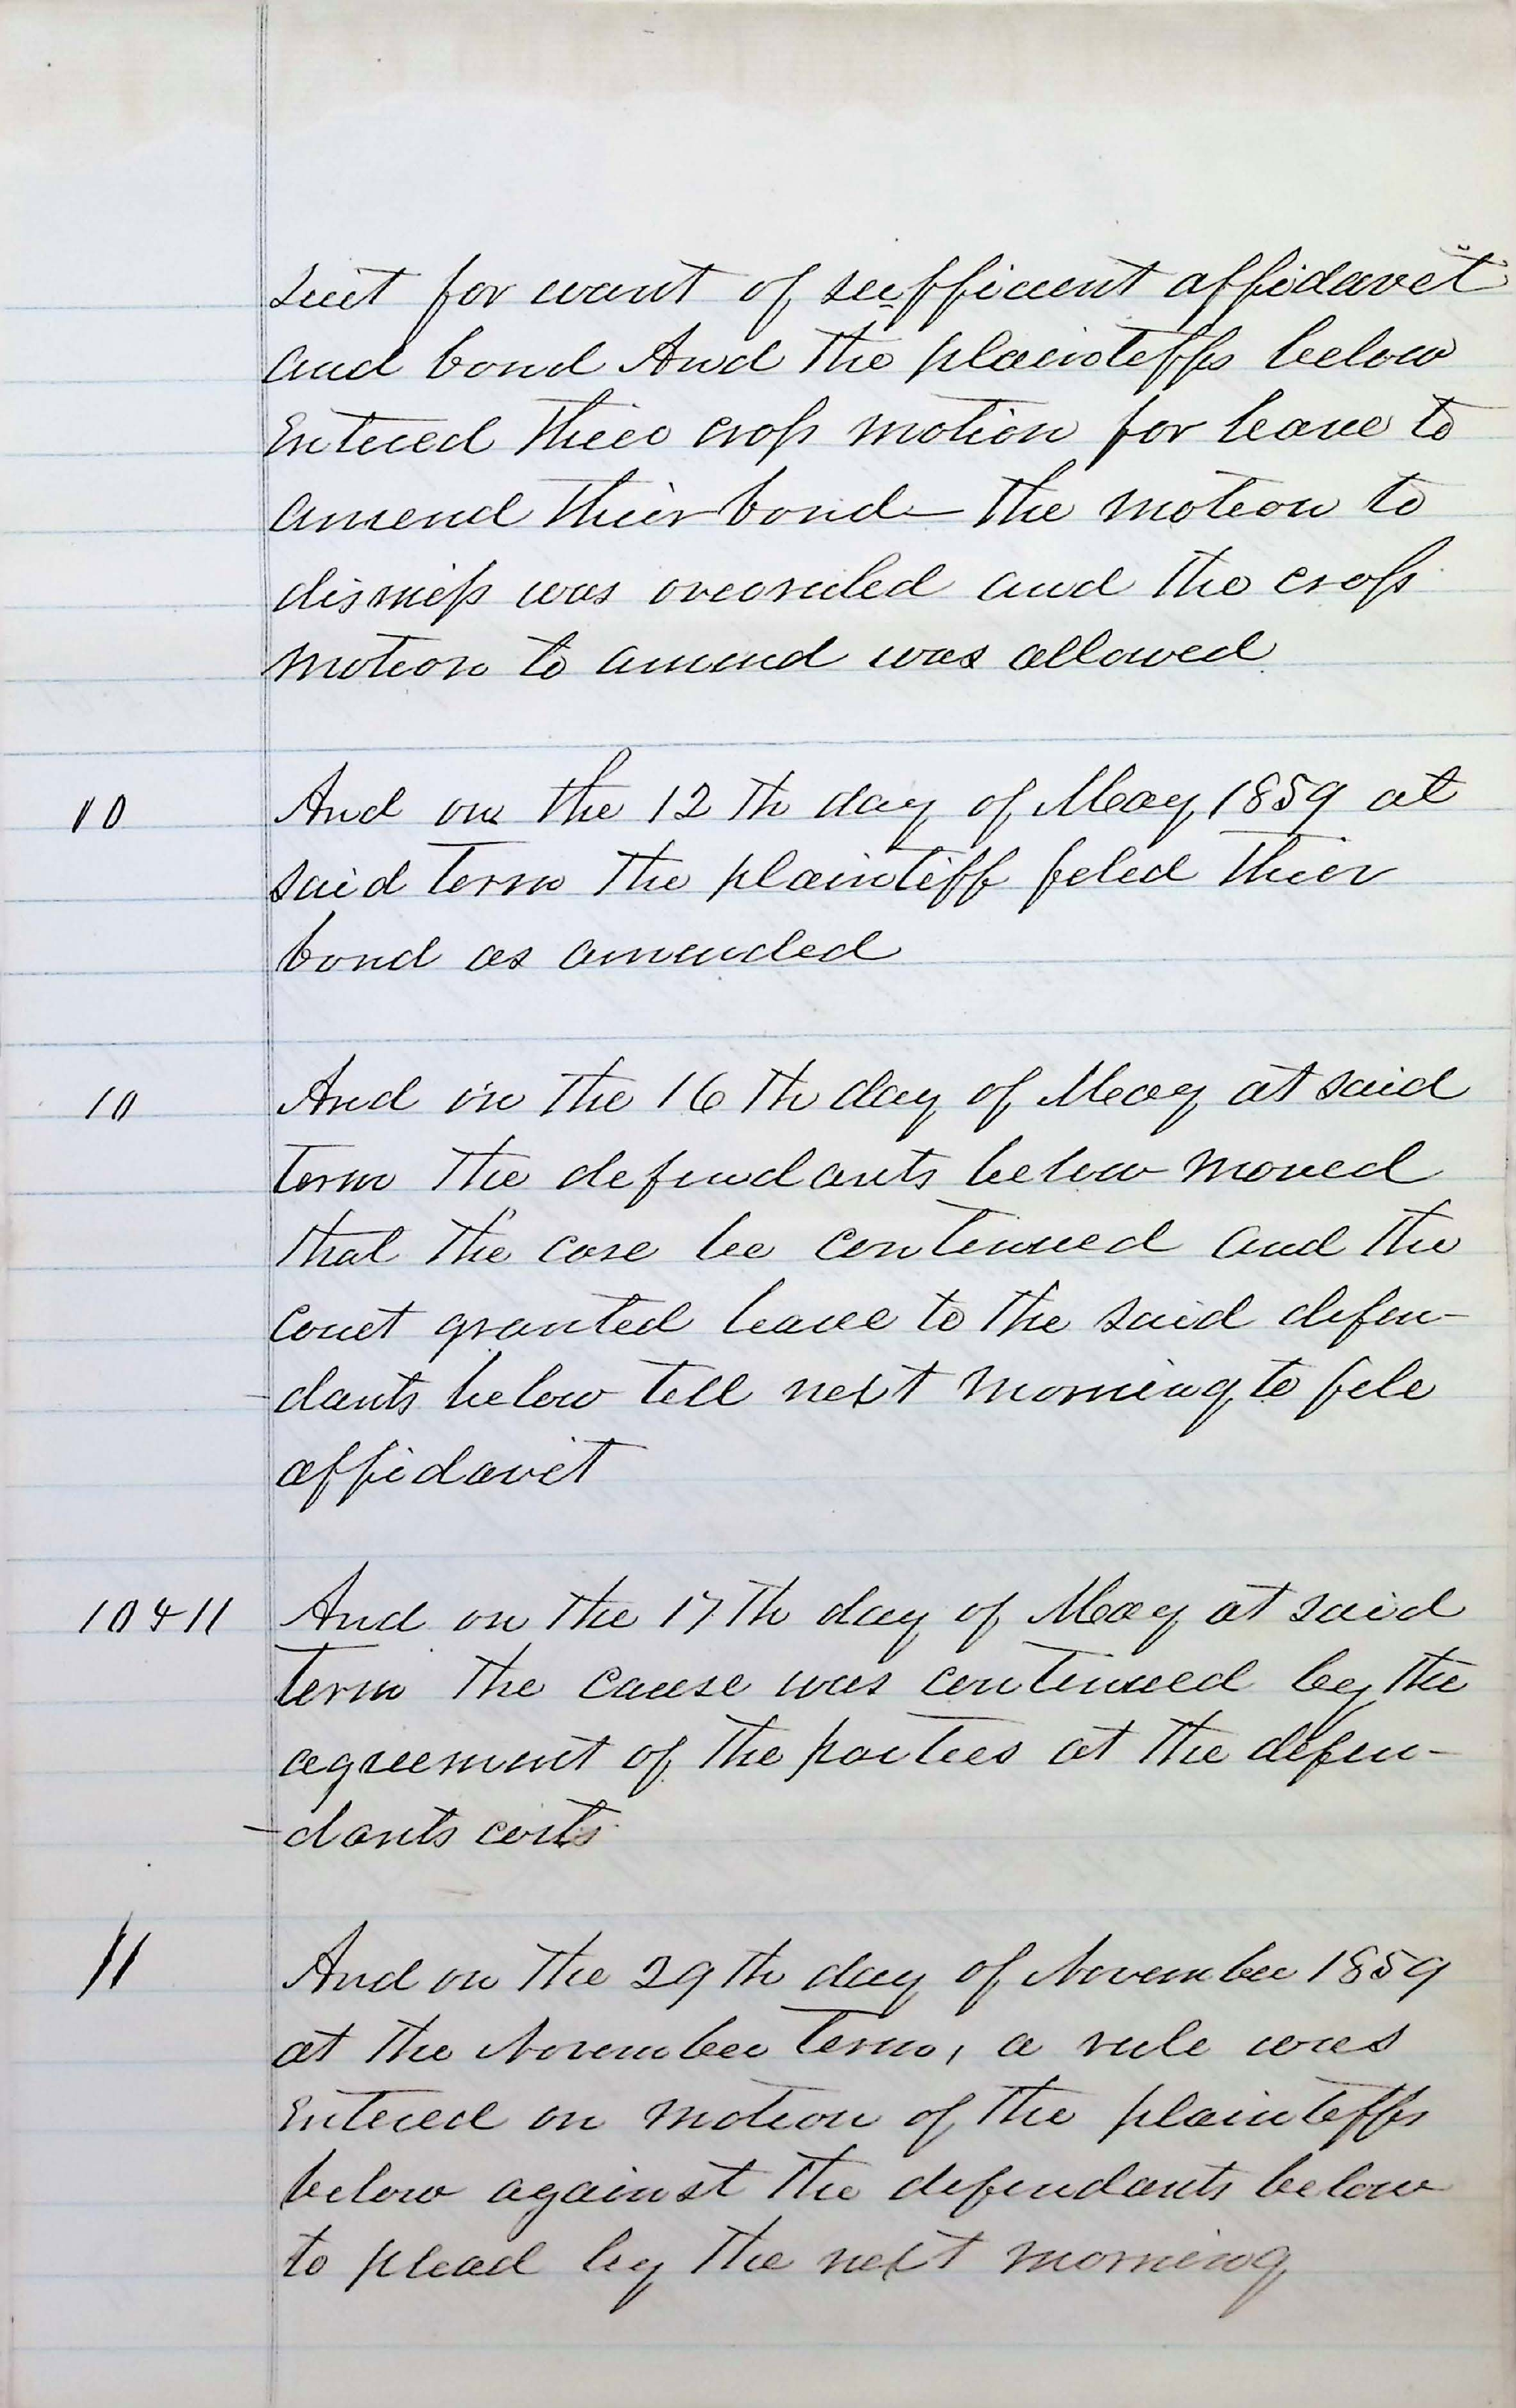 suit for want of sufficient affidavit
and bond And the plaintiffs below
Entered their cross motion for leave to
amend their bond – the motion to
dismiss was overruled and the cross
motion to amend was allowed
10 And on the 12th day of May 1859 at
said term the plaintiff filed their
bond as amended
10 And in the 16th day of May at said
term the defendants below moved
that the case be continued and the
court granted leave to the said defen-
-dants below till next morning to file
affidavit
10 & 11 And on the 17th day of May at said
term the cause was continued by the
agreement of the parties at the defen-
-dants costs
11 And on the 29th day of November 1859
at the November term, a rule was
Entered on motion of the plaintiffs
below against the defendants below
to plead by the next morning